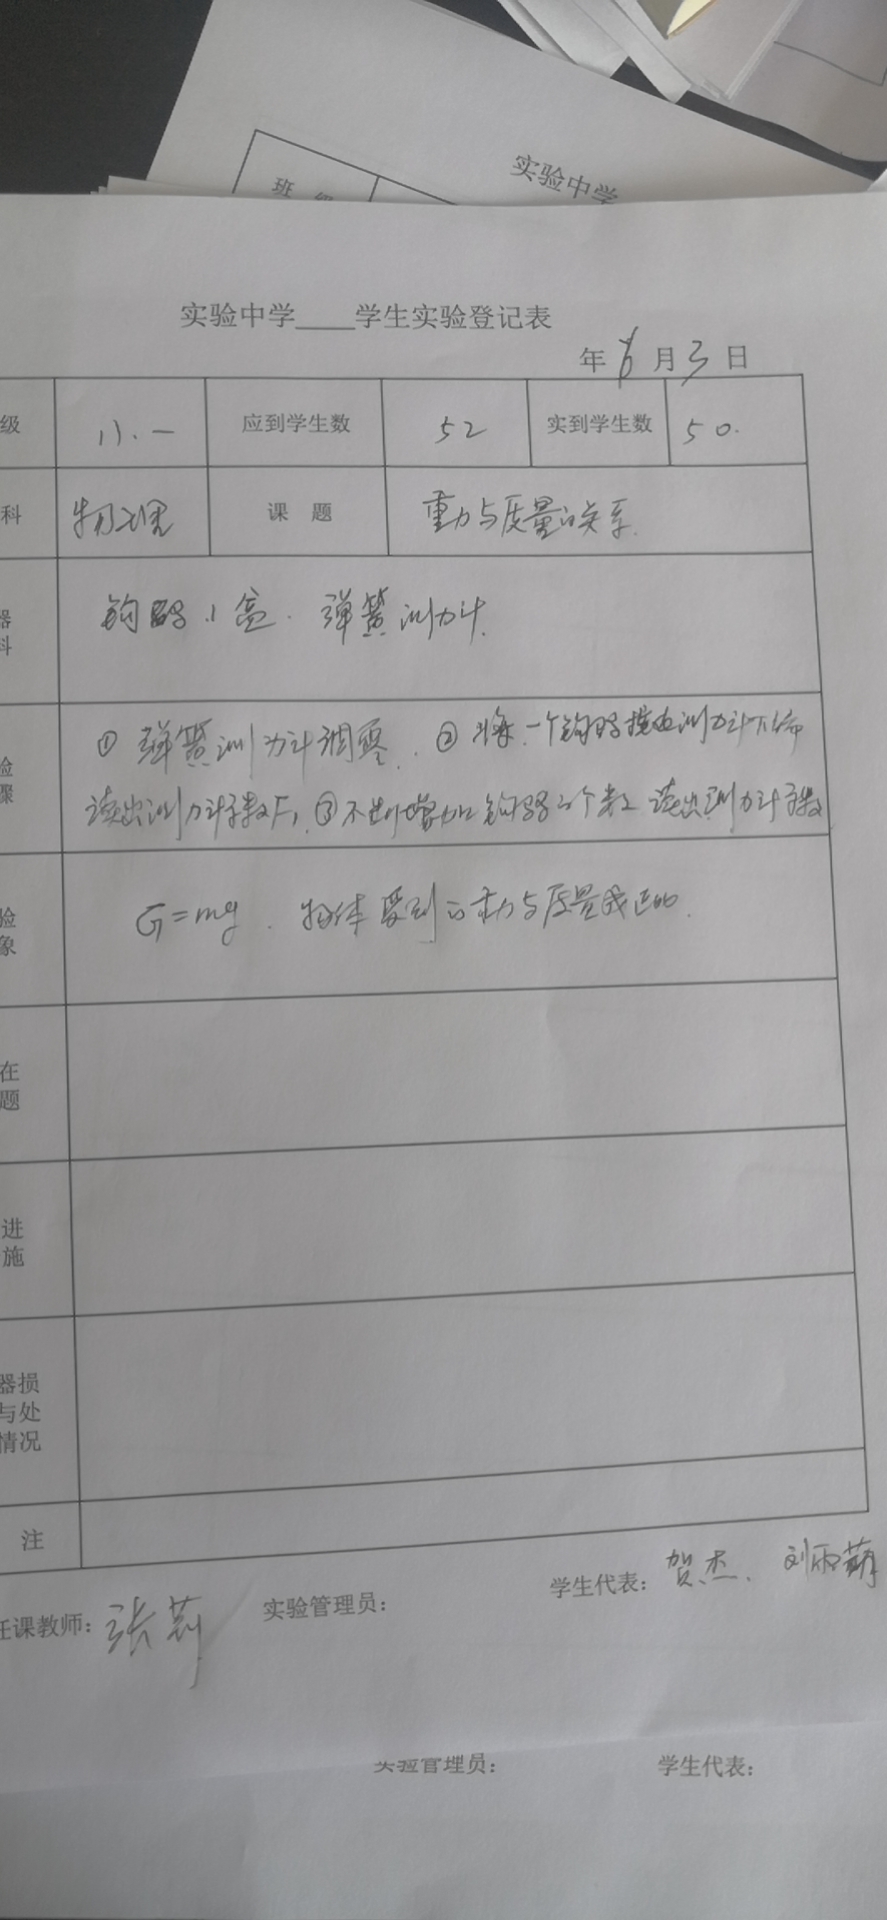 实验中学
班 级
实验中学____学生实验登记表
年 6 月 3 日
级 八.一 应到学生数 52 实到学生数 50.
科 物理 课 题 重力与质量的关系.
器
科 钩码 1 盒. 弹簧测力计.
验
骤 ① 弹簧测力计调零. ② 将一个钩码挂在测力计下端
读出测力计示数F₁. ③ 不断增加钩码的个数 读出测力计示数
验
象 G=mg. 物体受到的重力与质量成正比.
在
题
进
施
器损
与处
情况
注
任课教师: 张莉 实验管理员: 学生代表: 贺杰、刘雨萌
实验管理员: 学生代表: